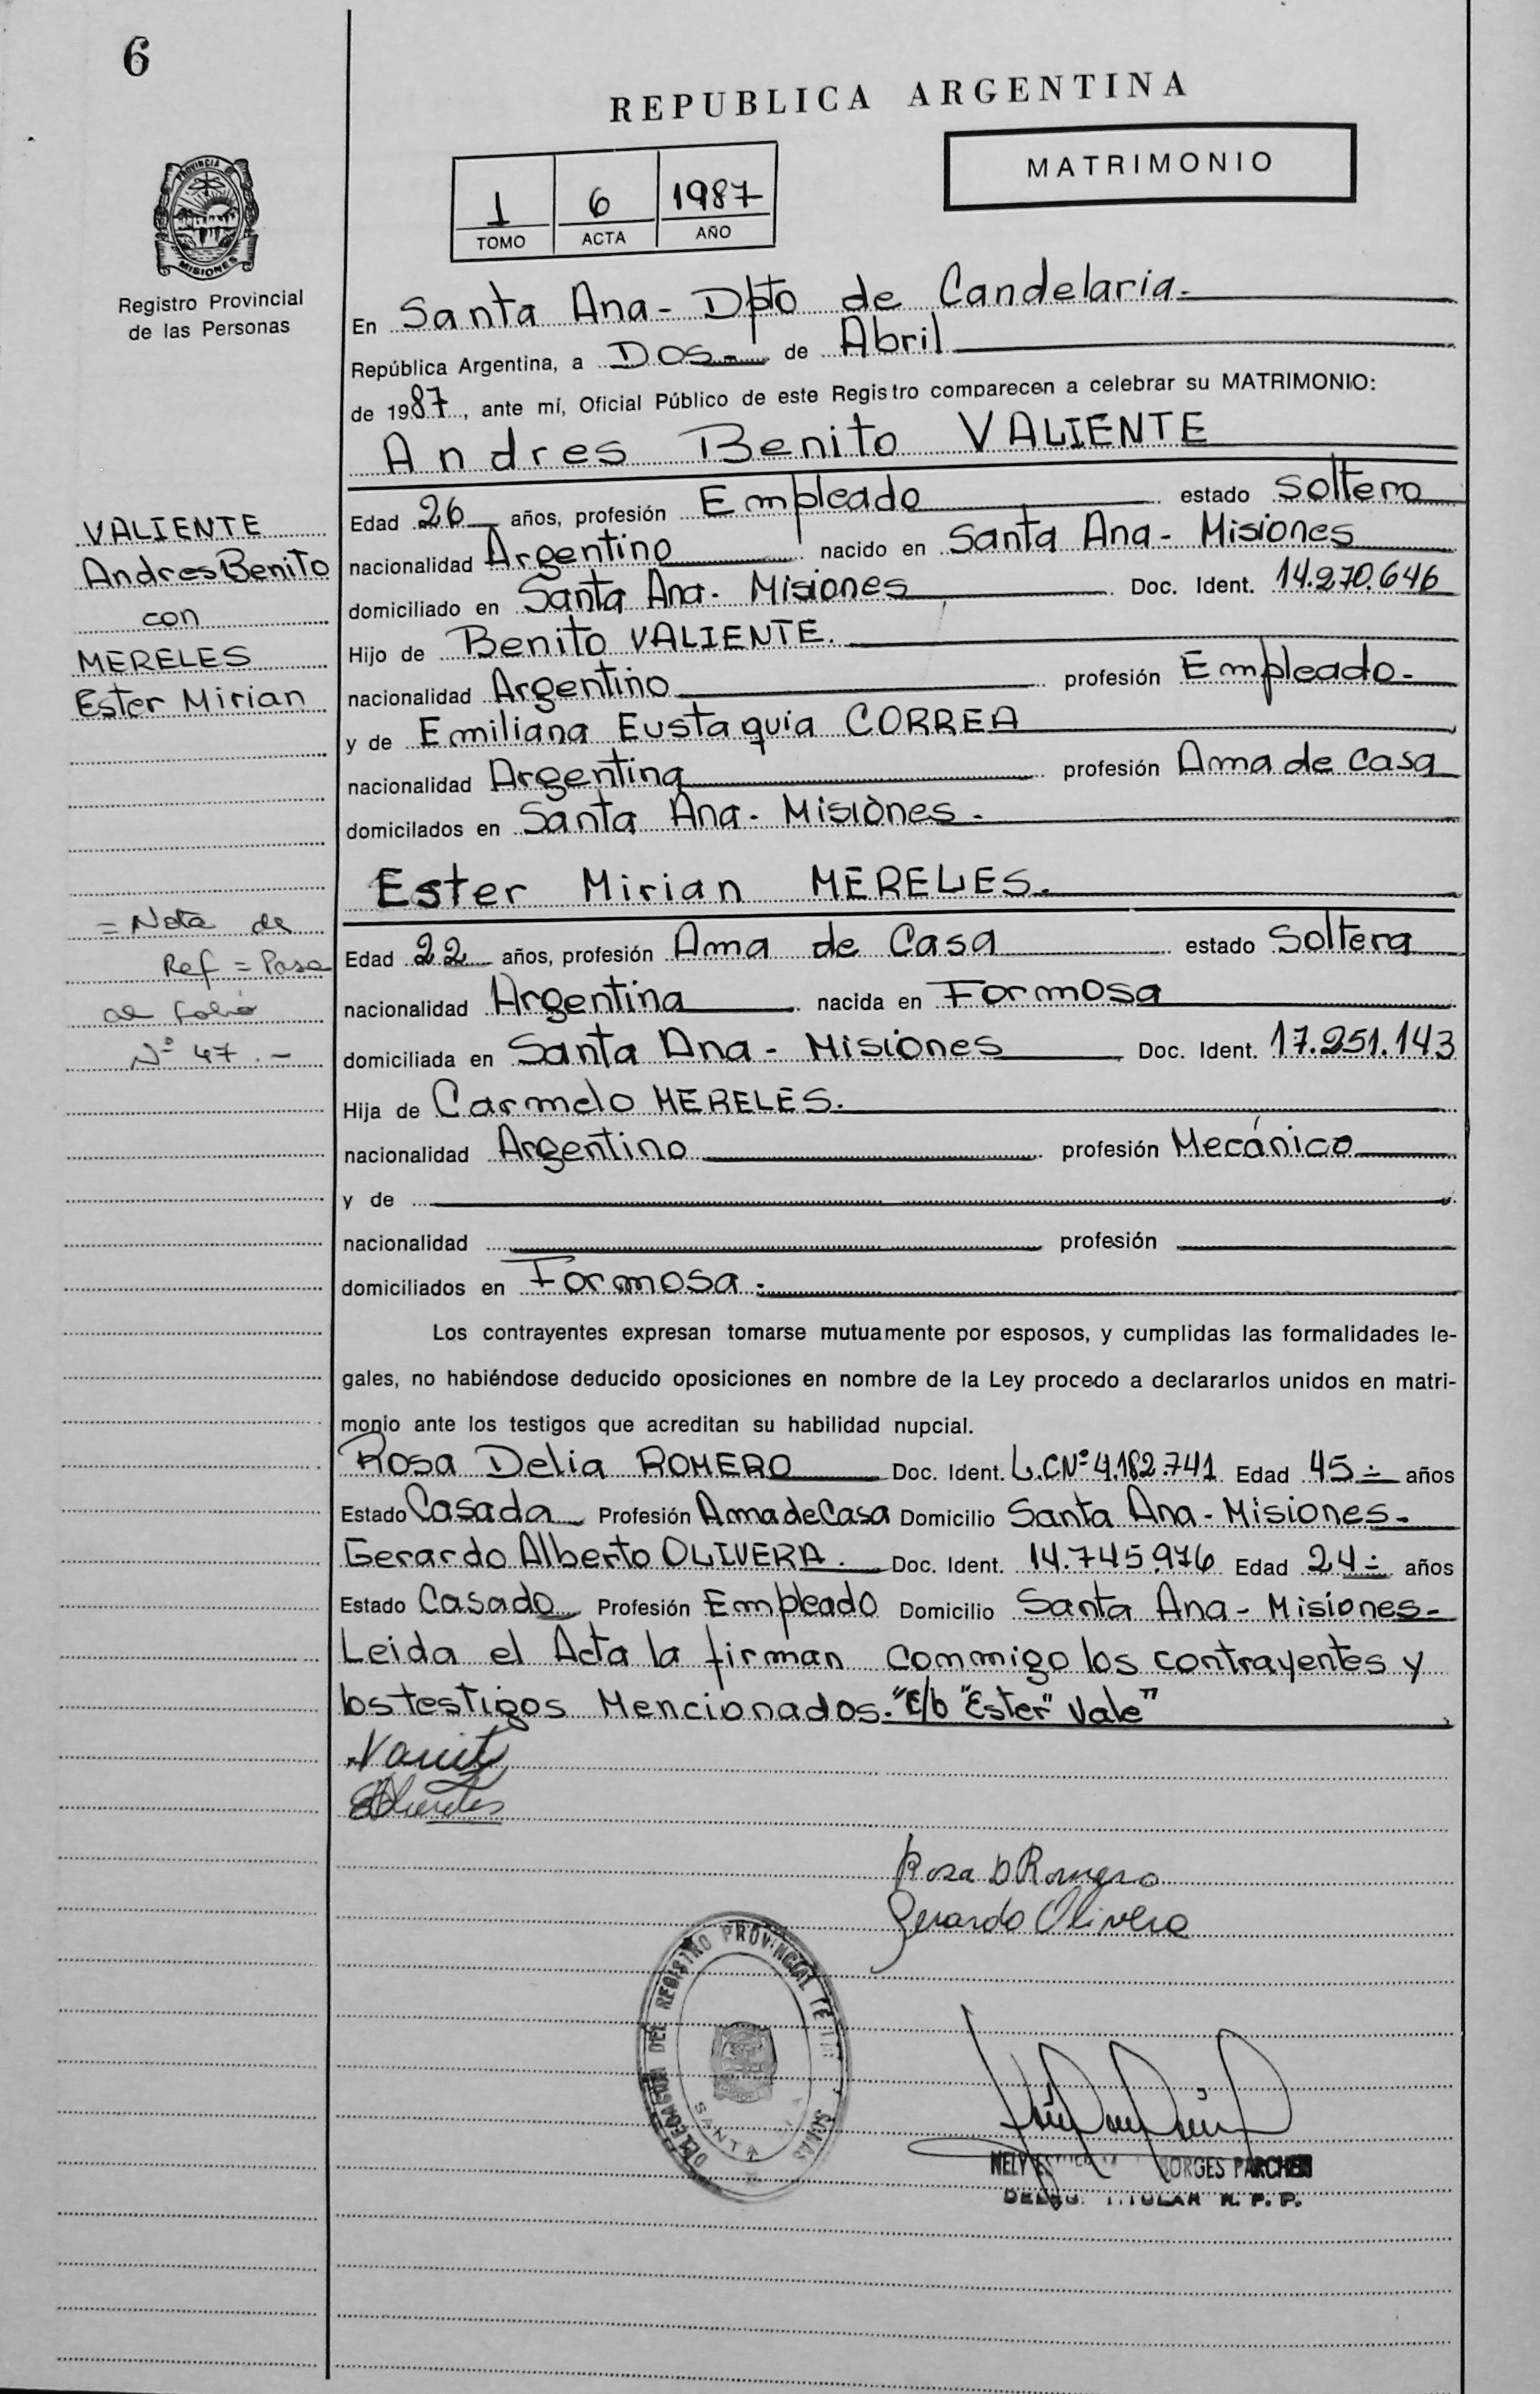 6
REPUBLICA ARGENTINA
MATRIMONIO
1 6 1987
TOMO ACTA AÑO
PROVINCIA DE
MISIONES
Registro Provincial
de las Personas
En Santa Ana - Dpto de Candelaria.
República Argentina, a Dos.- de Abril
de 1987, ante mí, Oficial Público de este Registro comparecen a celebrar su MATRIMONIO:
Andres Benito VALIENTE
Edad 26 años, profesión Empleado estado Soltero
nacionalidad Argentino nacido en Santa Ana - Misiones
domiciliado en Santa Ana - Misiones Doc. Ident. 14.270.646
Hijo de Benito VALIENTE.
nacionalidad Argentino profesión Empleado.
y de Emiliana Eustaquia CORREA
nacionalidad Argentina profesión Ama de Casa
domicilados en Santa Ana - Misiones.
VALIENTE
Andres Benito
con
MERELES
Ester Mirian
Ester Mirian MERELES.
Edad 22 años, profesión Ama de Casa estado Soltera
nacionalidad Argentina nacida en Formosa
domiciliada en Santa Ana - Misiones Doc. Ident. 17.251.143
Hija de Carmelo MERELES.
nacionalidad Argentino profesión Mecánico
y de
nacionalidad profesión
domiciliados en Formosa.
= Nota de
Ref = Pasa
al folio
Nº 47.-
Los contrayentes expresan tomarse mutuamente por esposos, y cumplidas las formalidades le-
gales, no habiéndose deducido oposiciones en nombre de la Ley procedo a declararlos unidos en matri-
monio ante los testigos que acreditan su habilidad nupcial.
Rosa Delia ROMERO Doc. Ident. L.C Nº 4.182.741 Edad 45 años
Estado Casada Profesión Ama de Casa Domicilio Santa Ana - Misiones.
Gerardo Alberto OLIVERA. Doc. Ident. 14.745.976 Edad 24 años
Estado Casado Profesión Empleado Domicilio Santa Ana - Misiones.
Leida el Acta la firman commigo los contrayentes y
los testigos Mencionados. "E/b "Ester" Vale"
Rosa D Romero
Gerardo Olivera
DELEGACION DEL REGISTRO PROVINCIAL
SANTA
NELY BORGES PARCHEN
TITULAR R. P. P.